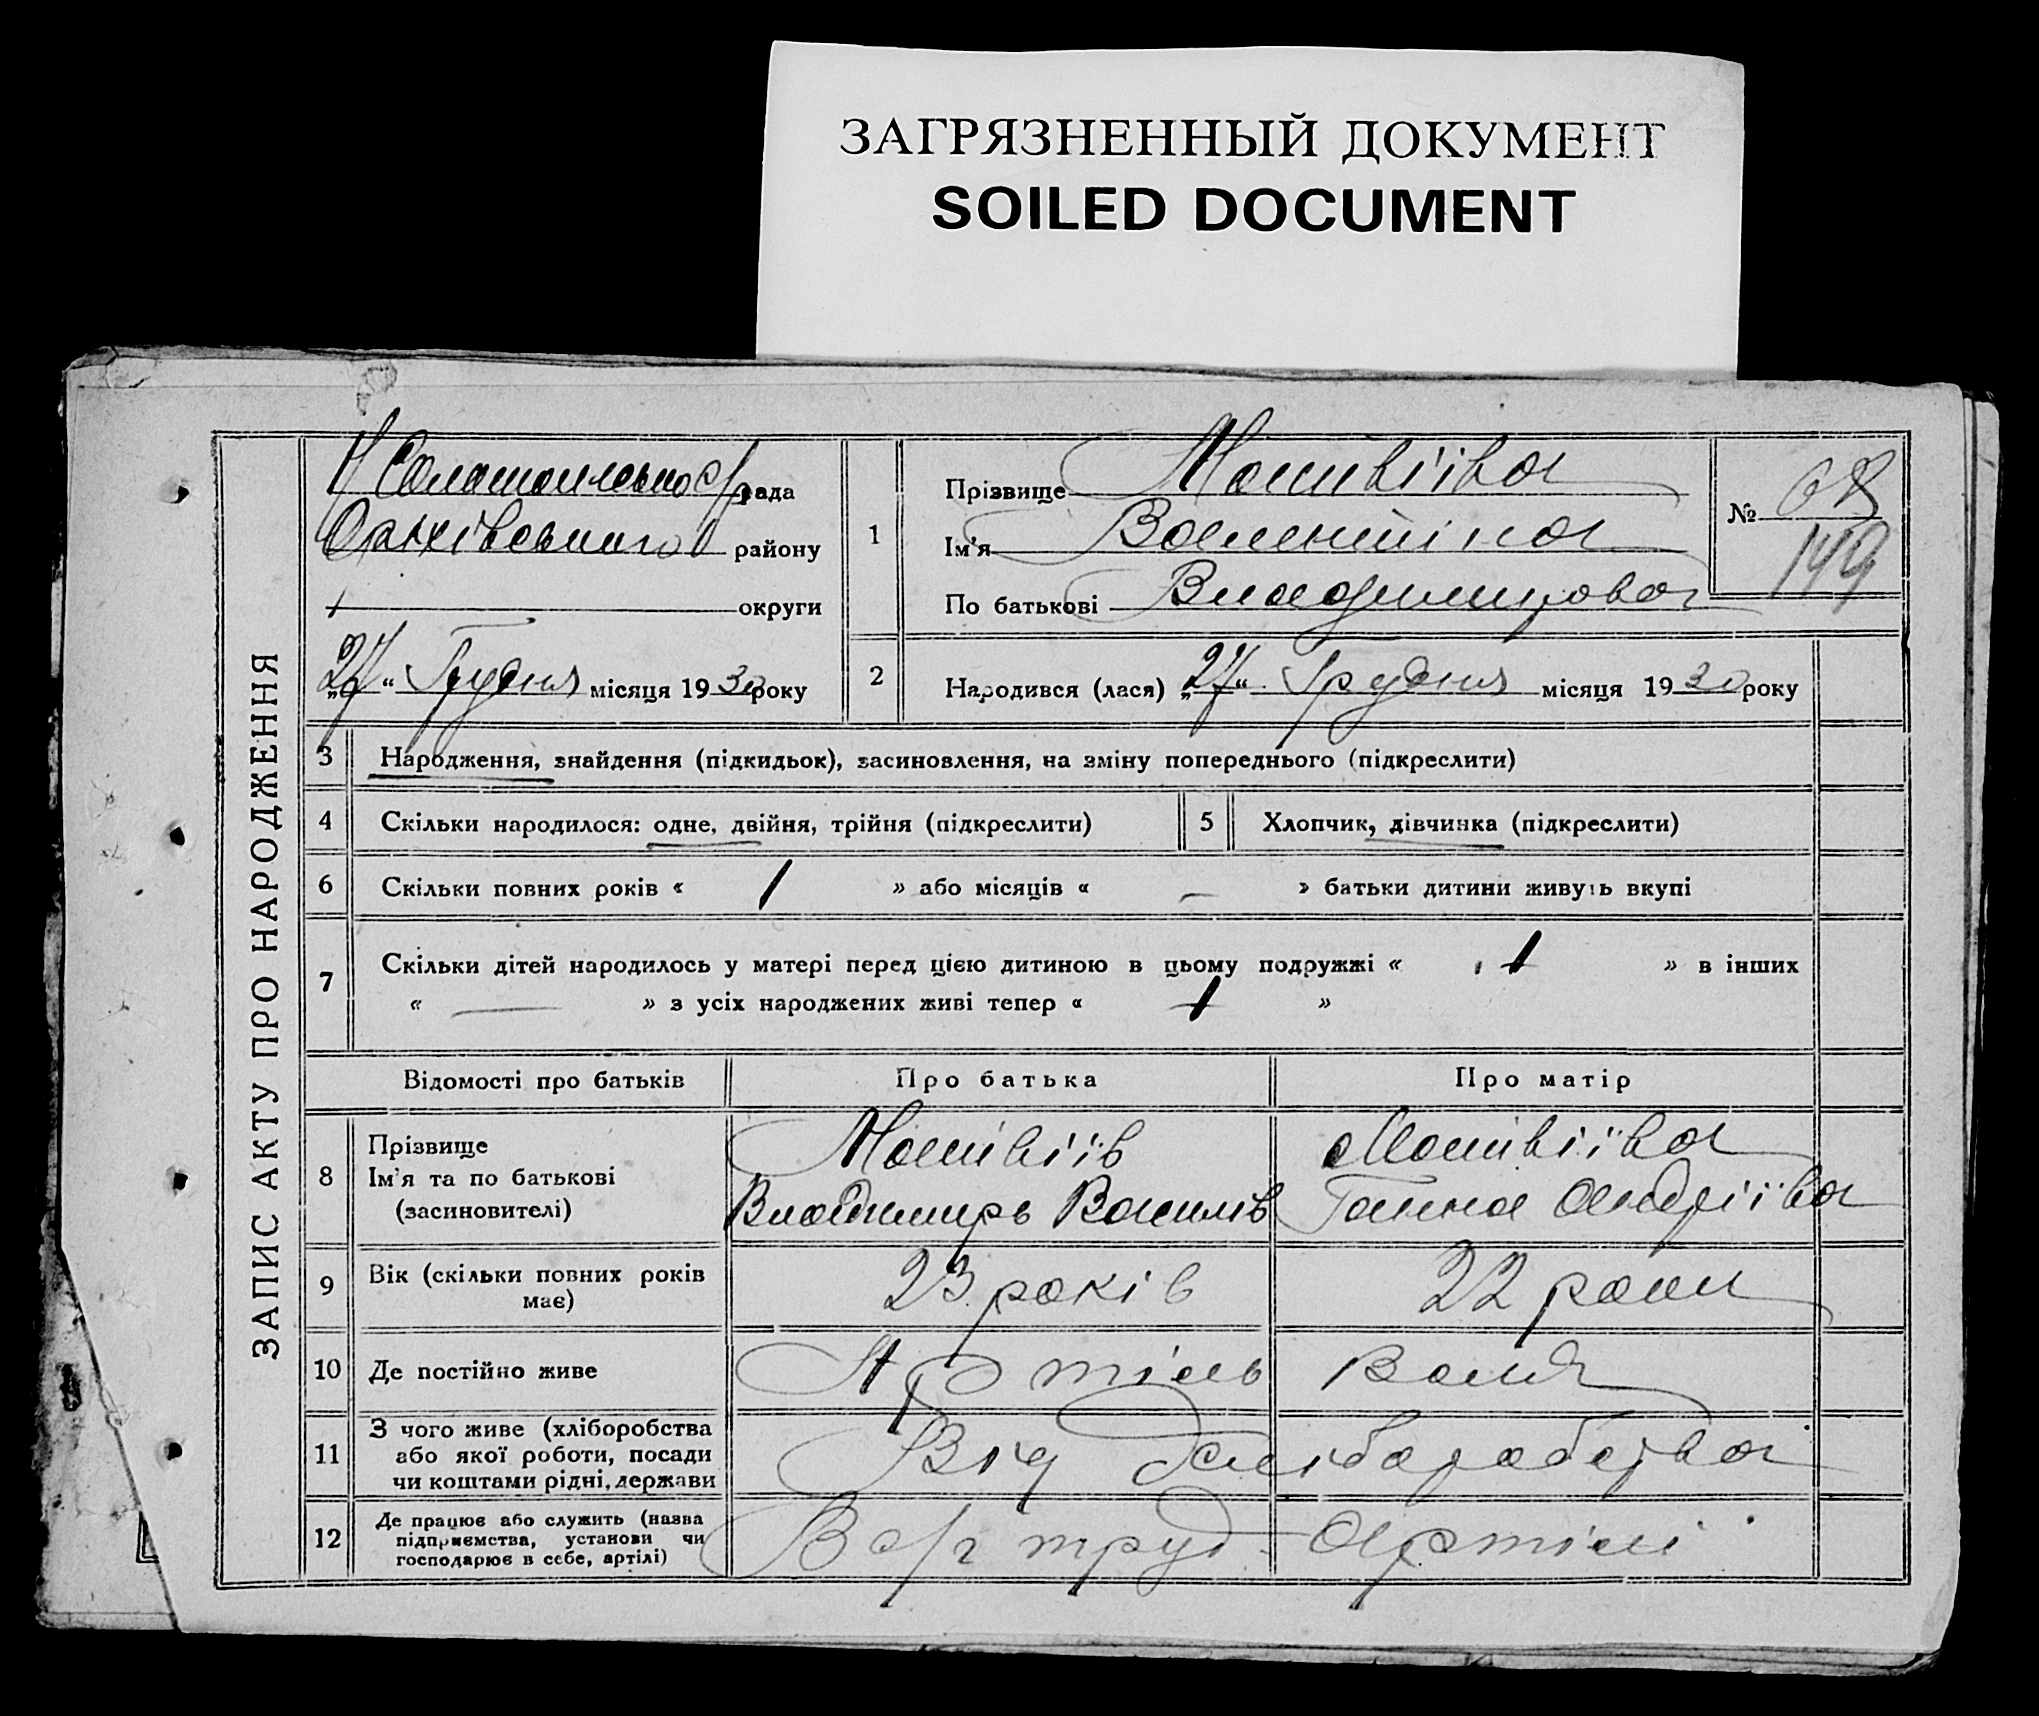 ЗАГРЯЗНЕННЫЙ ДОКУМЕНТ
SOILED DOCUMENT
ЗАПИС АКТУ ПРО НАРОДЖЕННЯ
рада
Оріхівського району
округи
„27“ Грудня місяця 1930 року
1
Прізвище Матвіїва
Ім'я Валентіна
По батькові Владимирова
№ 68
149
2 Народився (лася) „27“ Грудня місяця 1930 року
3 Народження, знайдення (підкидьок), засиновлення, на зміну попереднього (підкреслити)
4 Скільки народилося: одне, двійня, трійня (підкреслити)
5 Хлопчик, дівчинка (підкреслити)
6 Скільки повних років « 1 » або місяців « – » батьки дитини живуть вкупі
7 Скільки дітей народилось у матері перед цією дитиною в цьому подружжі « 1 » в інших
« — » з усіх народжених живі тепер « 1 »
Відомості про батьків Про батька Про матір
8 Прізвище
Ім'я та по батькові
(засиновителі)
Матвіїв
Владимиръ Василів
Матвіїва
Ганна Андріїва
9 Вік (скільки повних років
має)
23 років
22 роки
10 Де постійно живе Артіль Воля
11 З чого живе (хліборобства
або якої роботи, посади
чи коштами рідні, держави
Від Хліборобства
12 Де працює або служить (назва
підприємства, установи чи
господарює в себе, артілі)
В с/г труд Артілі